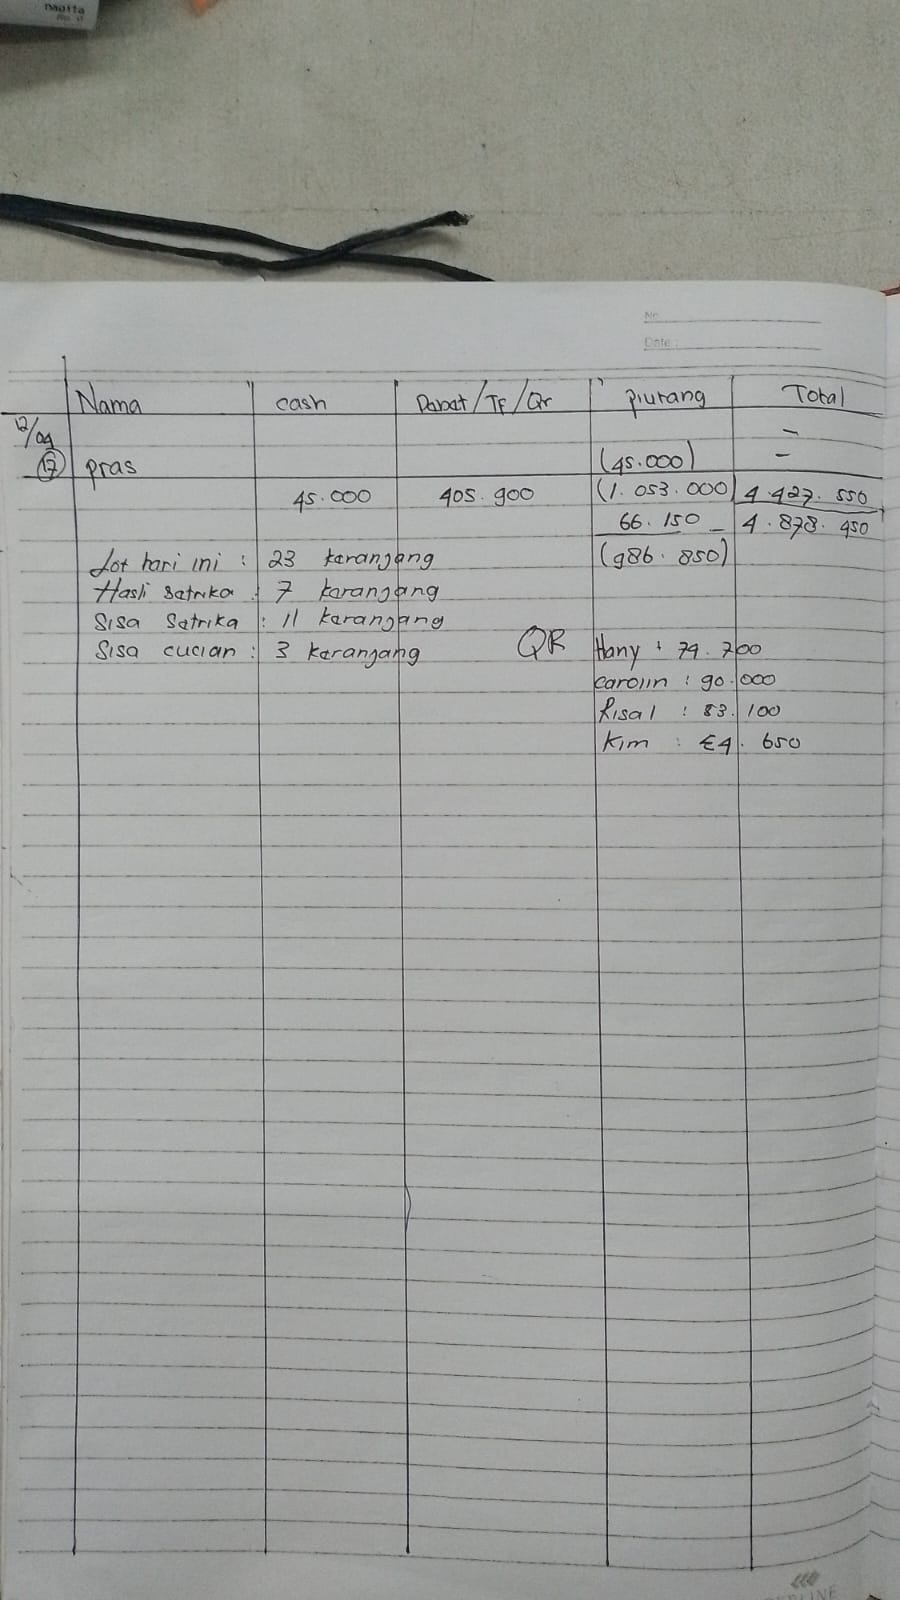 nagita
No.
Date :
Nama cash Dabat/TF/Qr piutang Total
12/04 -
17 pras (45.000) -
45.000 405.900 (1.053.000) 4.427.550
66.150 - 4.878.450
Lot hari ini : 23 keranjang (986.850)
Hasli Satrika : 7 keranjang
Sisa Satrika : 11 keranjang
Sisa cucian : 3 keranjang QR Hany : 79.700
carolin : 90.000
Risal : 83.100
Kim : 650